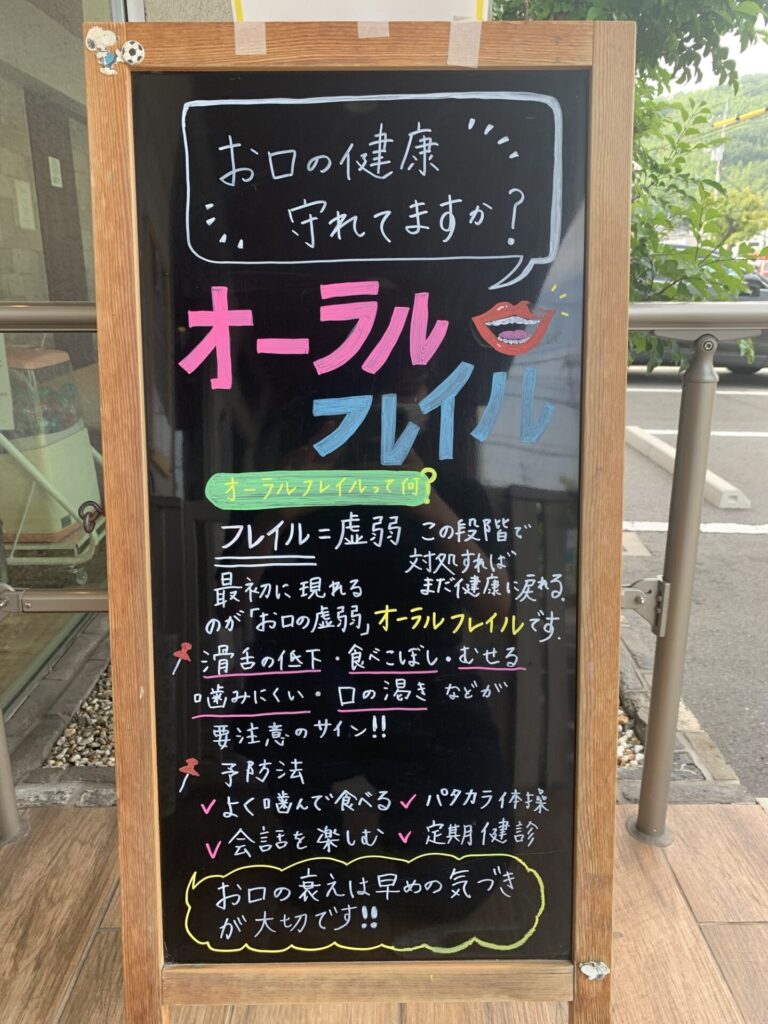 お口の健康
守れてますか?
オーラル
フレイル
オーラルフレイルって何?
フレイル=虚弱 この段階で
対処すれば
まだ健康に戻れる。
最初に現れる
のが「お口の虚弱」オーラルフレイルです。
滑舌の低下・食べこぼし・むせる
噛みにくい・口の渇きなどが
要注意のサイン!!
予防法
✓よく噛んで食べる ✓パタカラ体操
✓会話を楽しむ ✓定期健診
お口の衰えは早めの気づき
が大切です!!